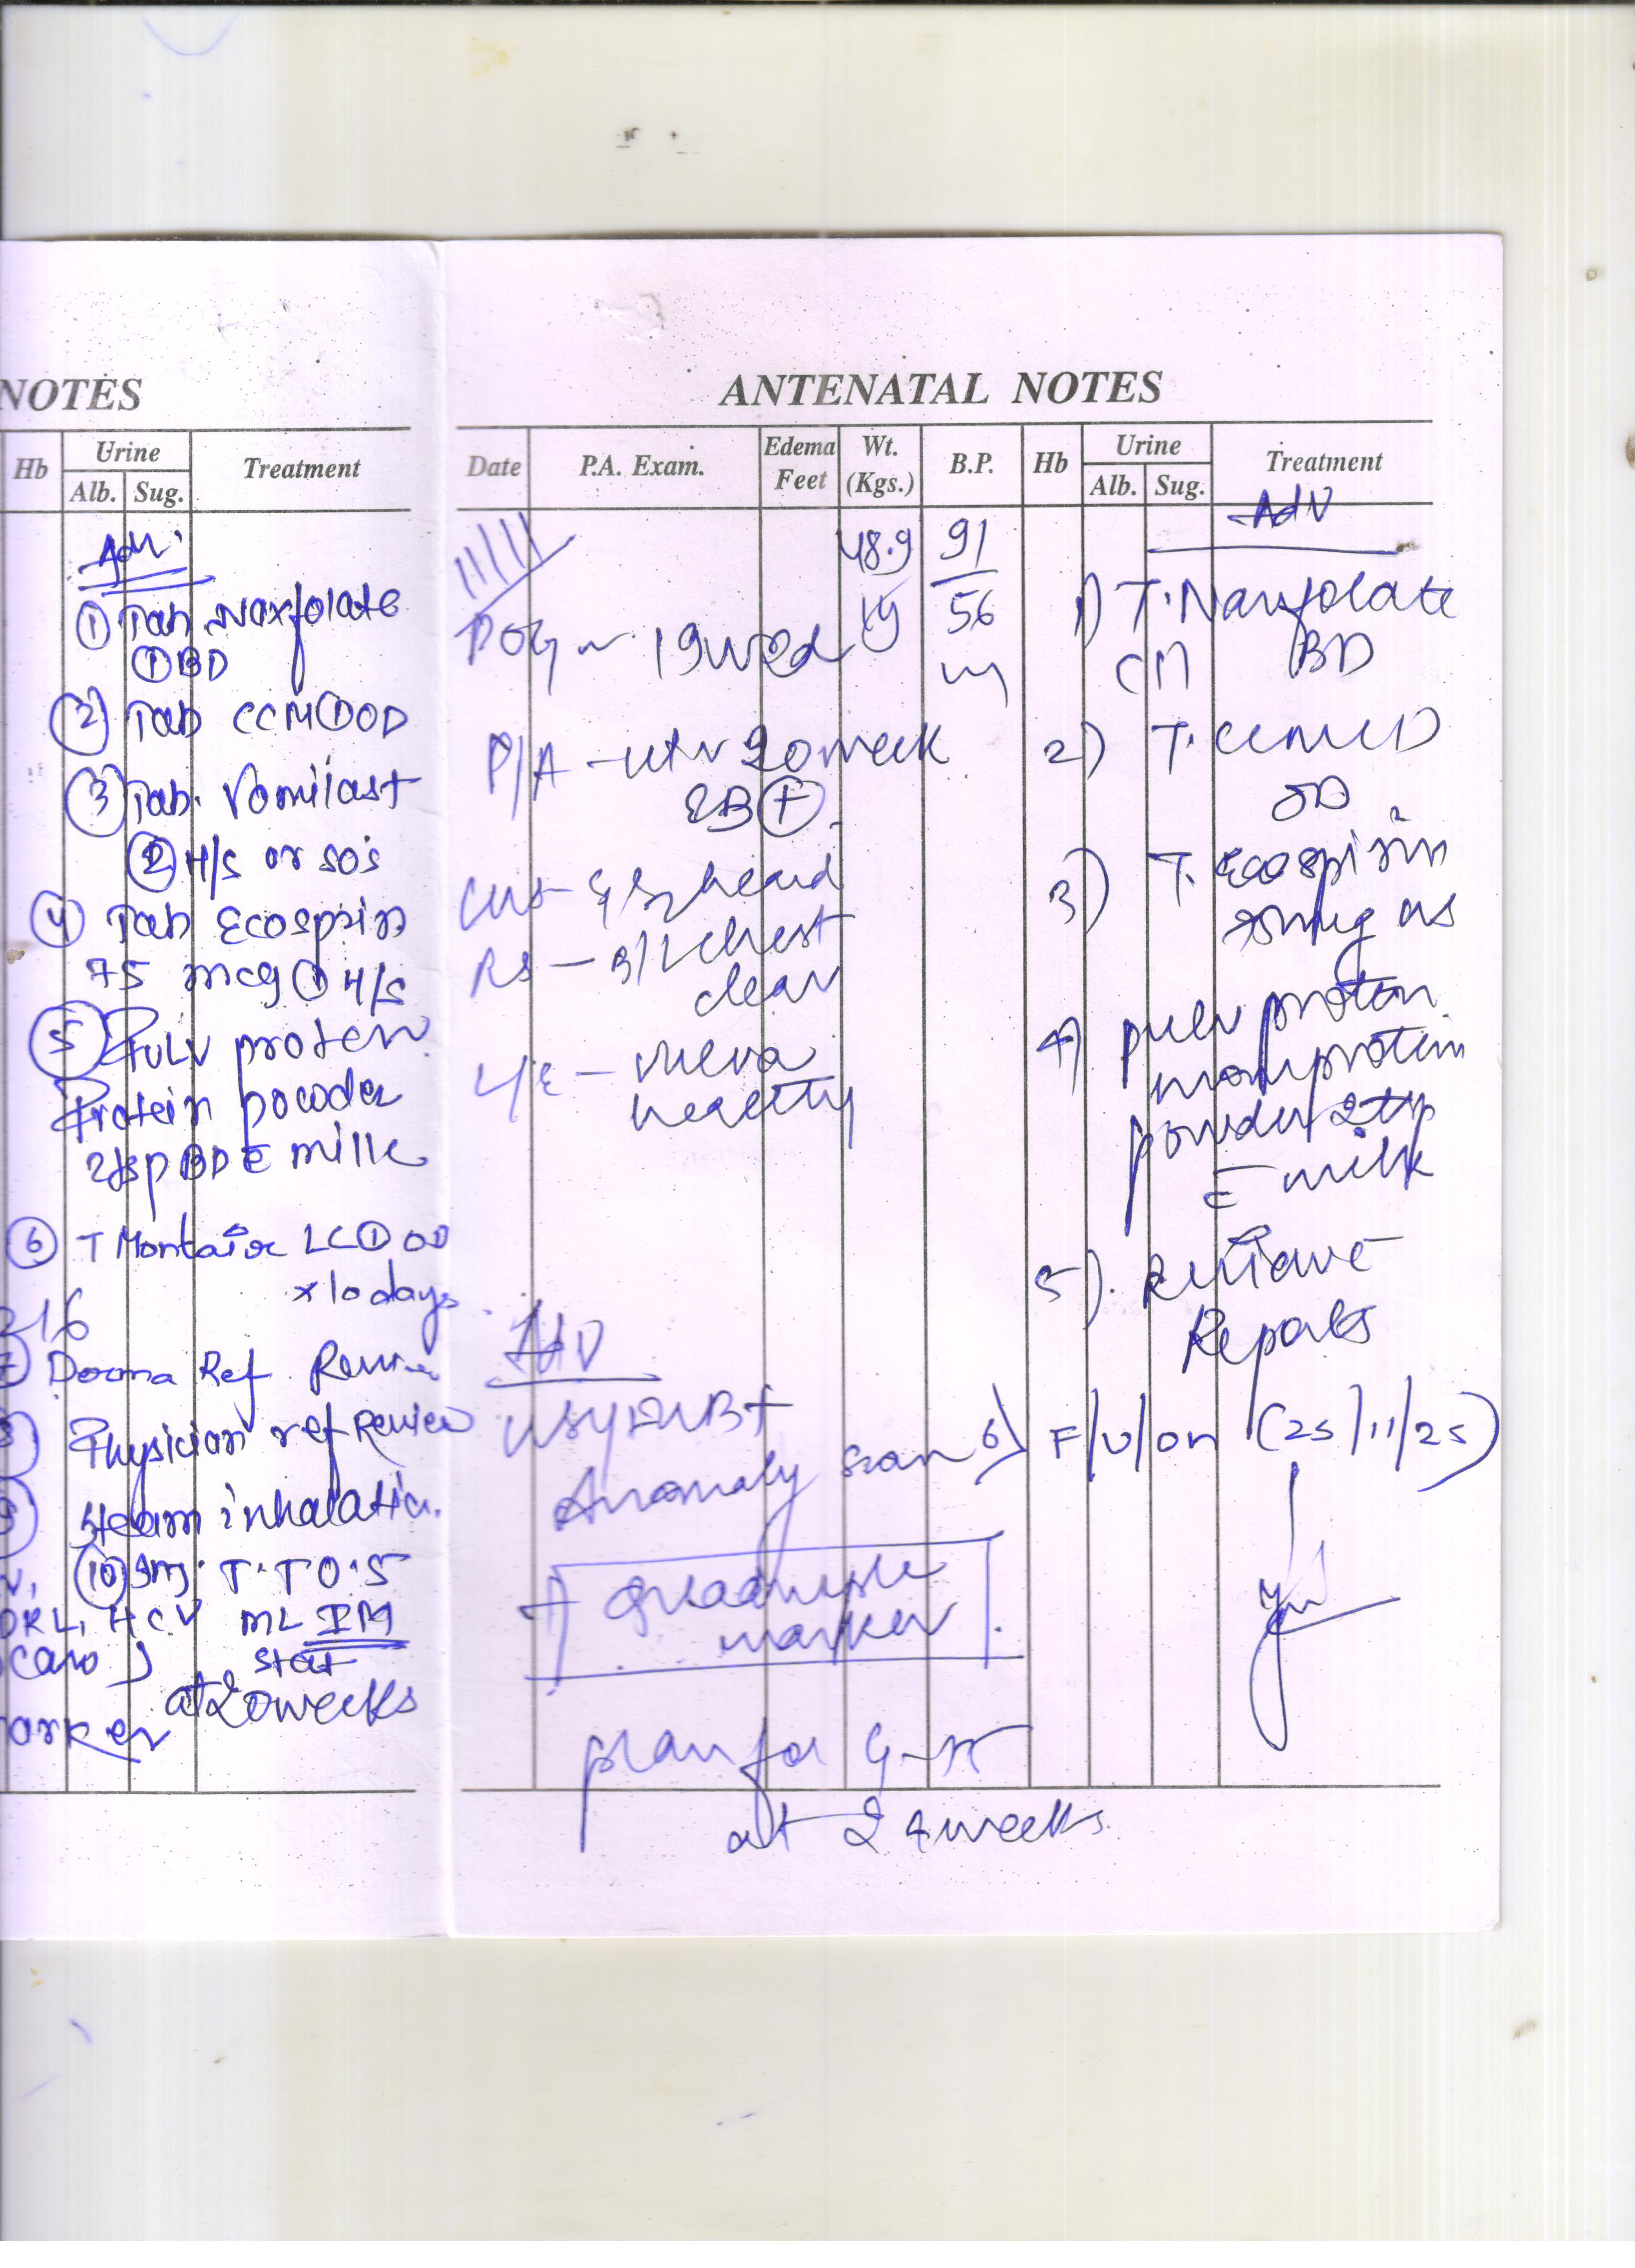 NOTES
Hb Urine Treatment
Alb. Sug.
Adv.
① Tab Naxfolate
① BD
② Tab CCM ① OD
③ Tab. Vomilast
② H/S or sos
④ Tab Ecosprin
75 mcg ① H/S
⑤ Pulv proten
Protein powder
2tsp BD c̄ milk
⑥ T Montair LC ① OD
x 10 days
Derma Ref
Physician ref Review
steam inhalation
⑩ Inj. T.T 0.5
DRL, HCV mL IM
stat
at 20 weeks
arker
ANTENATAL NOTES
Date P.A. Exam. Edema Feet Wt. (Kgs.) B.P. Hb Urine Treatment
Alb. Sug.
11/11 48.9 91 Adv
kg 56
19w2d
1) T. Naxfolate
BD
P/A - 20 week
EB ⊕
2) T. CCM
OD
CVS - S1S2 heard
3) T. Ecosprin
75mg
RS - B/L chest
clear
4) pulv proten
protein
powder 2tsp
c̄ milk
L/E - vulva
healthy
5). Review
Reports
Adv
Anomaly scan
6) F/U/on (25/11/25)
quadruple
marker
plan for
at 24 weeks